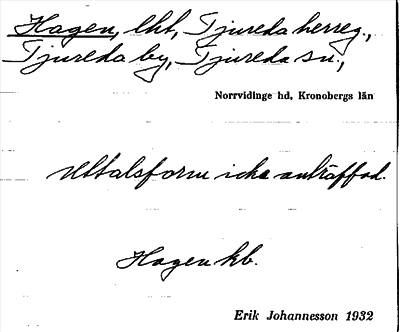 Hagen, lht, Tjureda herreg.,
Tjureda by, Tjureda sn.,
Norrvidinge hd, Kronobergs län
Uttalsform icke anträffad.
Hagen kb.
Erik Johannesson 1932